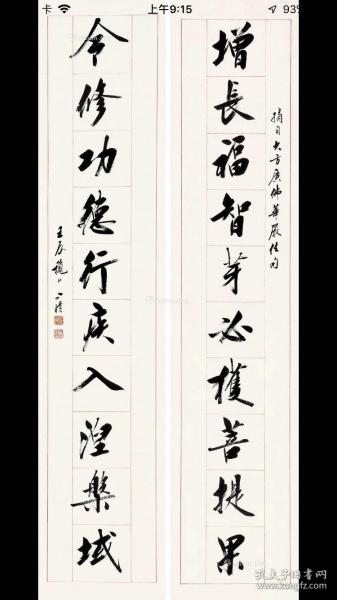 卡 上午9:15 93%
摘自大方廣佛華嚴經句
增長福智芽必獲菩提果
令修功德行疾入涅槃域
孔夫子旧书网